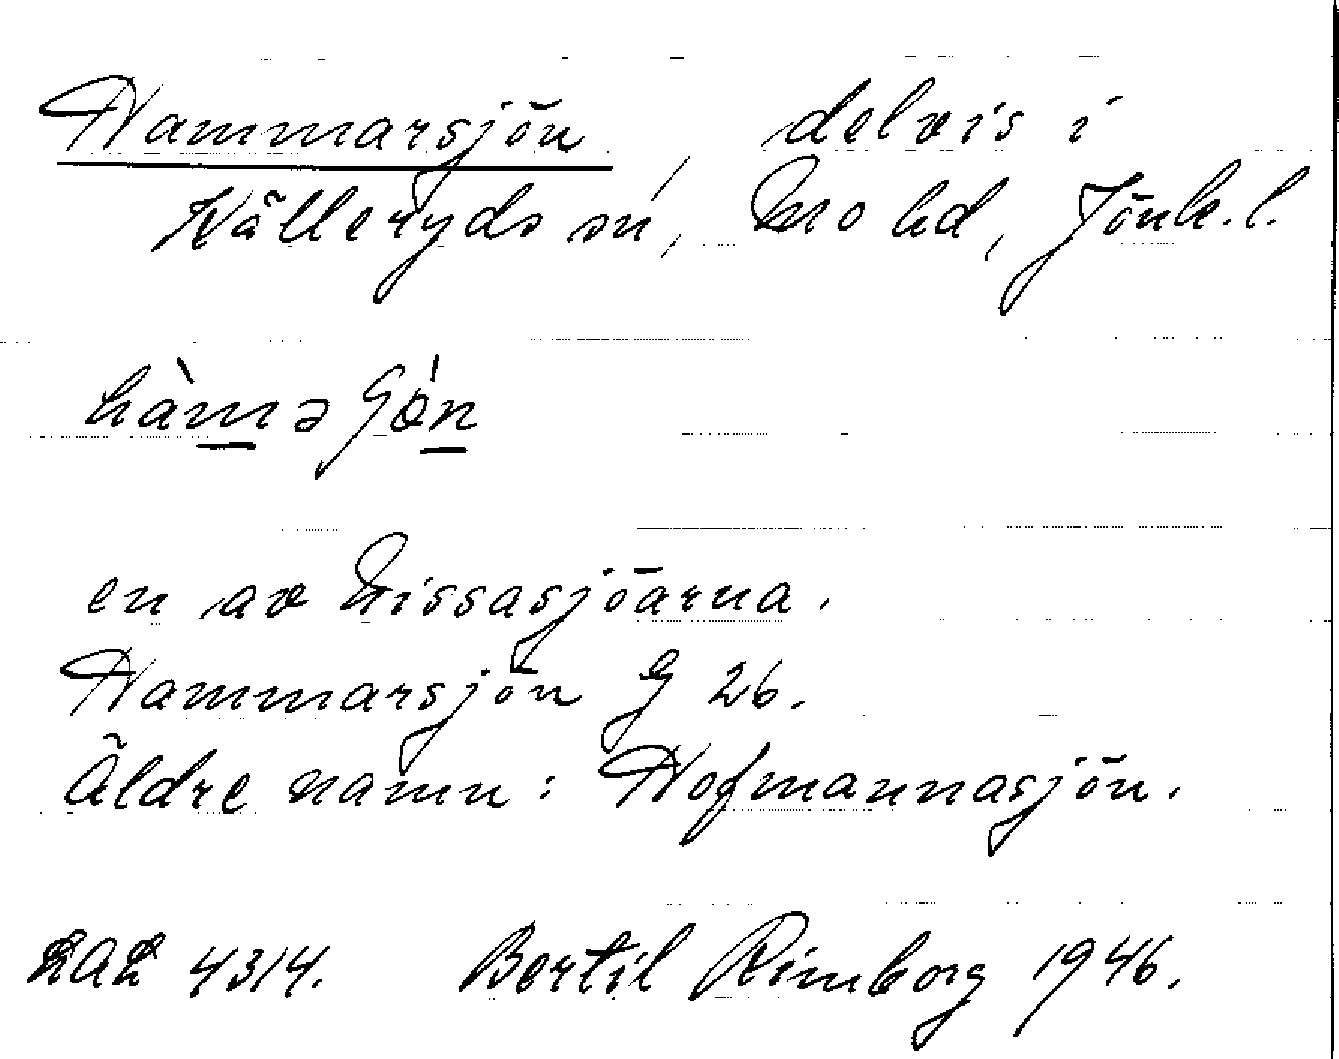 Hammarsjön, delvis i
Källeryds sn, Mo hd, Jönk. l.
en av Nissasjöarna.
Hammarsjön G 26.
Äldre namn: Hofmannasjön.
4314. Bertil Rimborg 1946.